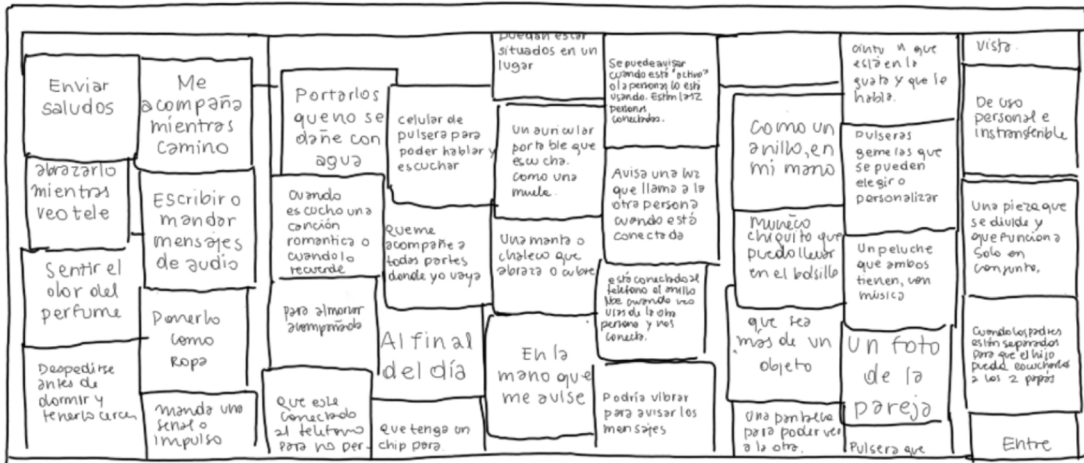 Enviar
saludos
abrazarlo
mientras
veo tele
Sentir el
olor del
perfume
Despedirse
antes de
dormir y
tenerlo cerca
Me
acompaña
mientras
camino
Escribir o
mandar
mensajes
de audio
Ponerlo
como
ropa
manda una
señal o
impulso
Portarlos
que no se
dañe con
agua
Cuando
escucho una
canción
romantica o
cuando lo
recuerde
para almorzar
acompañado
Que este
conectado
al telefono
para no per-
celular de
pulsera para
poder hablar y
escuchar
Que me
acompañe a
todas partes
donde yo vaya
Al final
del día
Que tenga un
chip para
puedan estar
situados en un
lugar
Un auricular
portable que
escucha.
como una
muela.
Una manta o
chaleco que
abraza o cubre
En la
mano que
me avise
Se puede avisar
cuando está "activo"
o la persona lo está
usando. Están las 2
personas
conectadas.
Avisa una luz
que llama a la
otra persona
cuando está
conectada
está conectado al
telefono el anillo
cuando
de la otra
persona y nos
conecta.
Podría vibrar
para avisar los
mensajes
como un
anillo, en
mi mano
muñeco
chiquito que
puedo llevar
en el bolsillo
que sea
más de un
objeto
Una pantalla
para poder ver
a la otra.
que
está en la
guata y que le
habla.
Pulseras
gemelas que
se pueden
elegir o
personalizar
Un peluche
que ambos
tienen, con
música
Un foto
de la
pareja
Pulsera que
vista.
De uso
personal e
instransferible
Una pieza que
se divide y
que funciona
Solo en
conjunto.
Cuando los padres
están separados
para que el hijo
pueda escucharlos
a los 2 papás
Entre